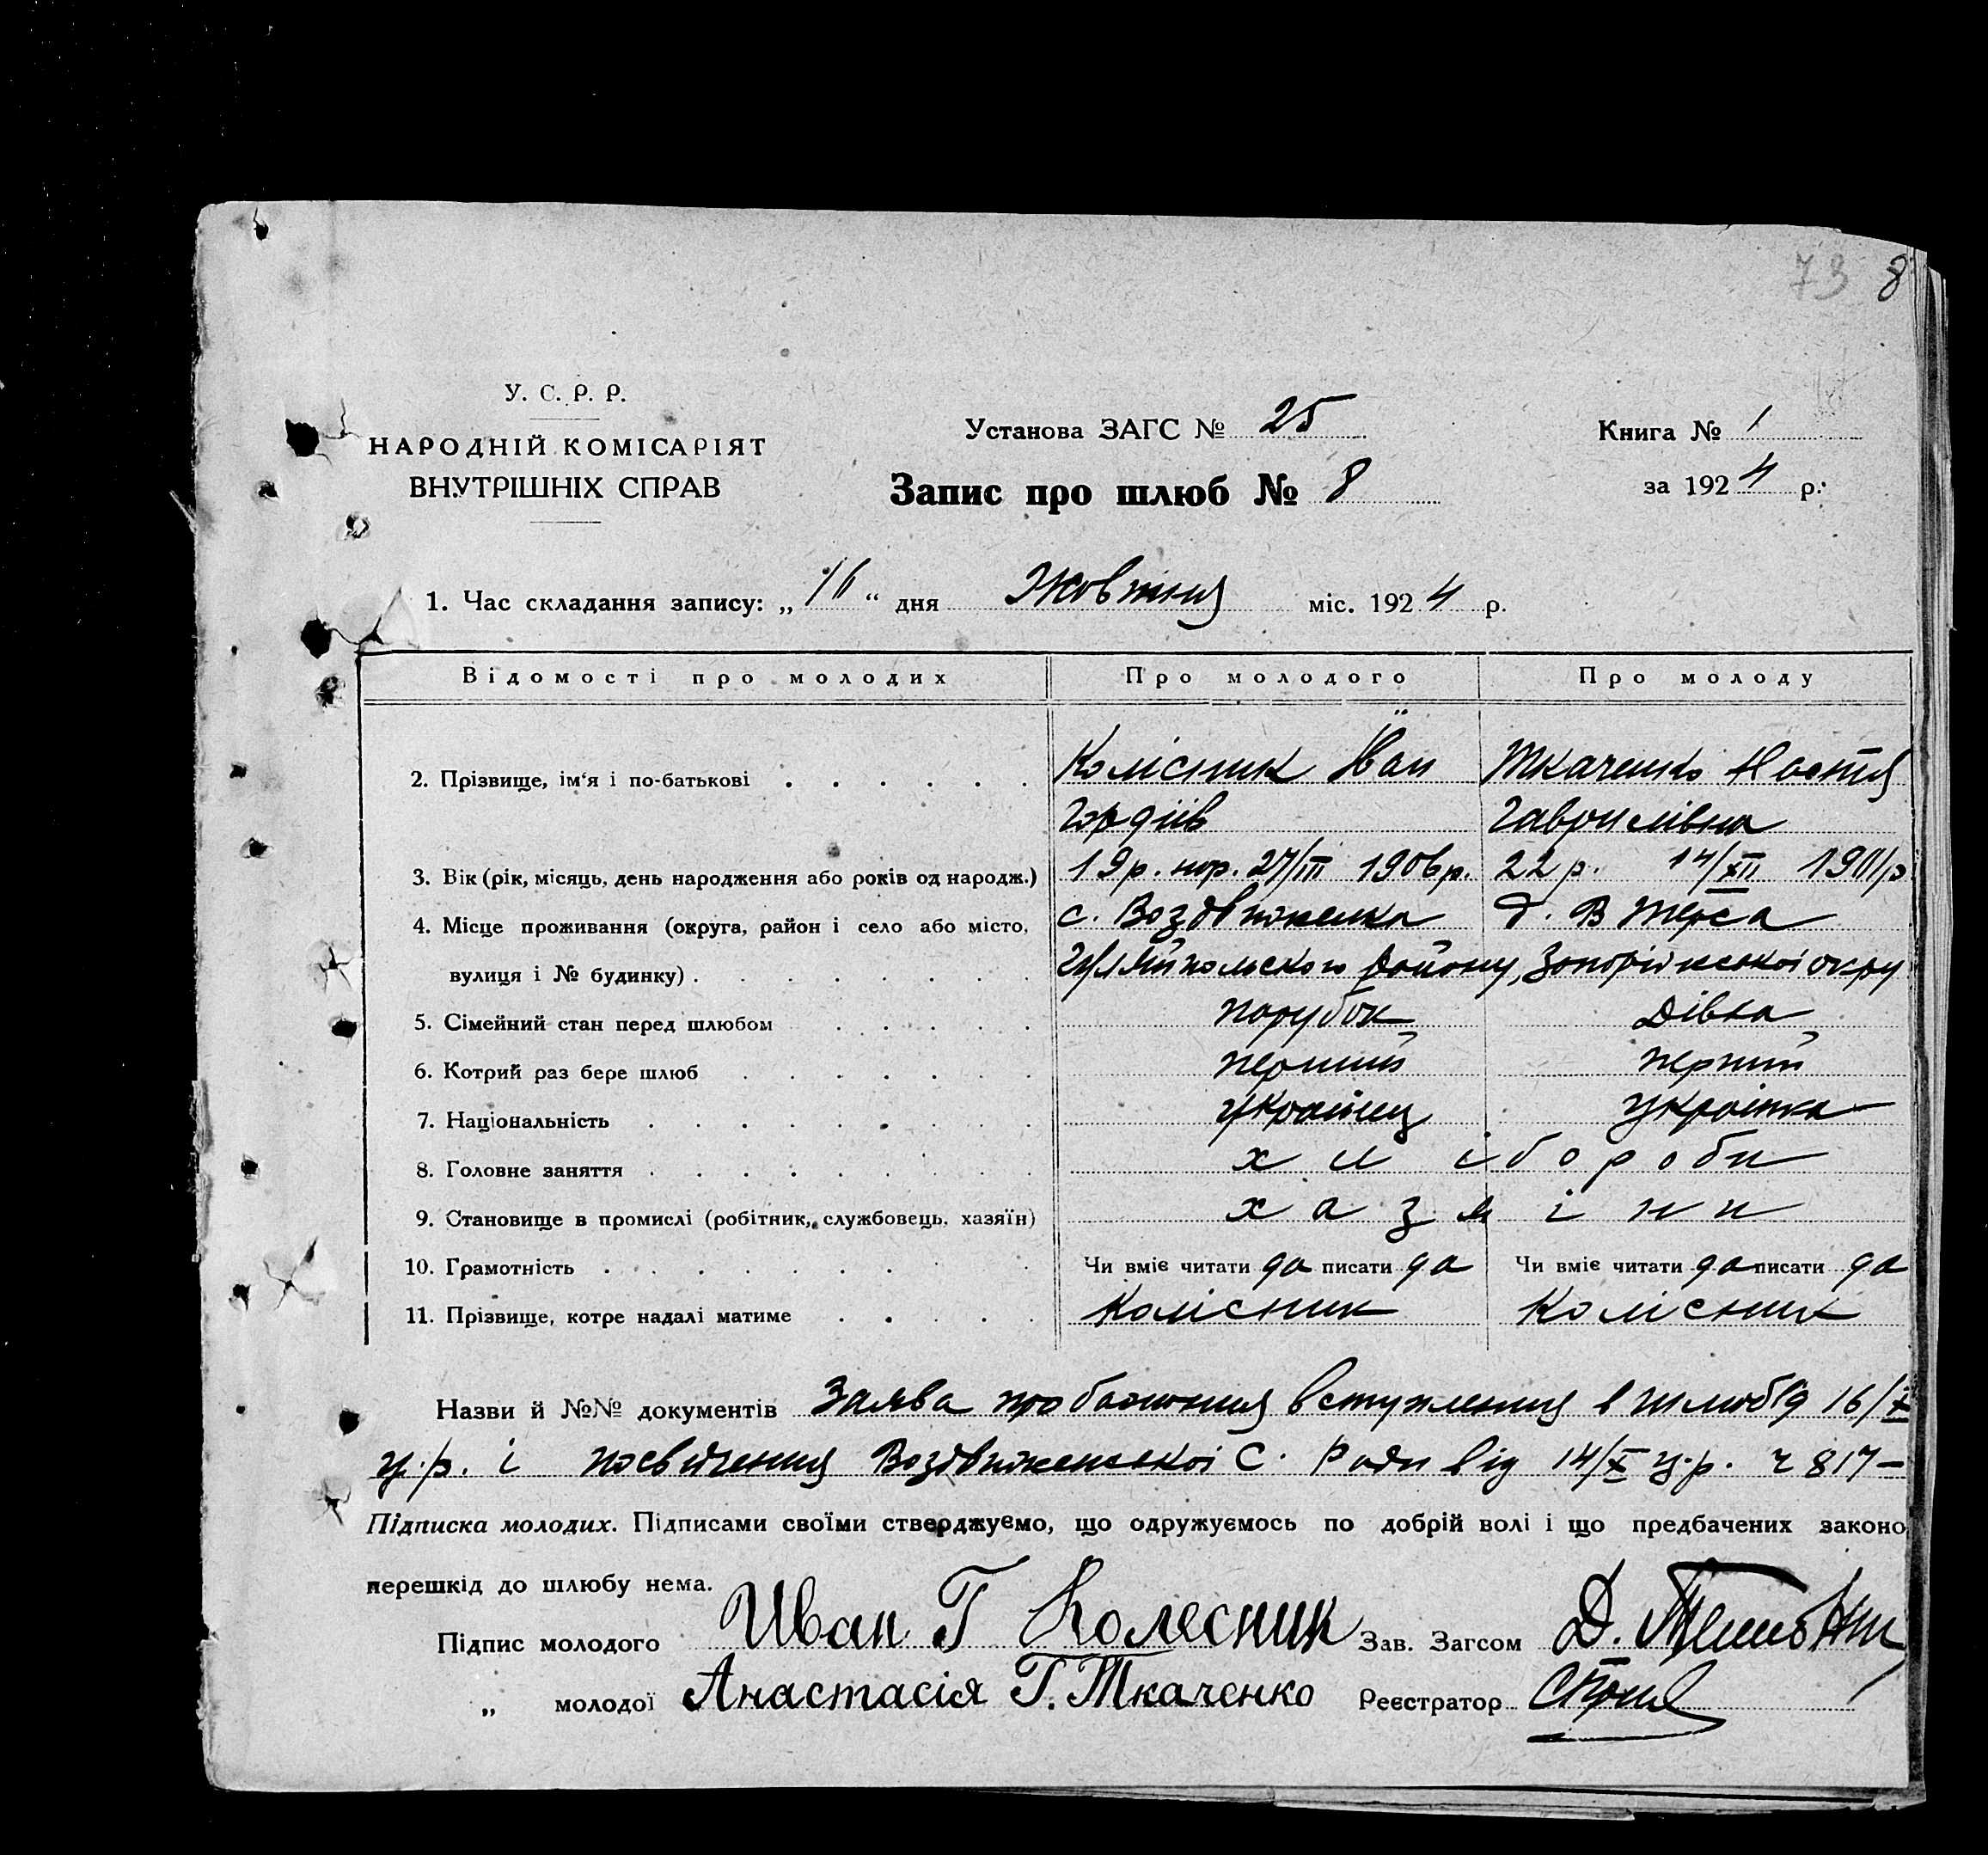 73 8
У. С. Р. Р.
НАРОДНІЙ КОМІСАРІЯТ
ВНУТРІШНІХ СПРАВ
Установа ЗАГС № 25
Запис про шлюб № 8
Книга № 1
за 1924 р.
1. Час складання запису: „16“ дня Жовтня міс. 1924 р.
Відомості про молодих Про молодого Про молоду
2. Прізвище, ім‘я і по-батькові Колісник Йван Ткаченко Настя
Гордіїв Гаврилівна
3. Вік (рік, місяць, день народження або років од народж.) 19 р. нар. 27/III 1906 р. 22 р. 14/XII 1901 р
4. Місце проживання (округа, район і село або місто, с. Воздвиженка В Терса
вулиця і № будинку) Гуляйпольского району, Запоріжської округ
5. Сімейний стан перед шлюбом парубок дівка
6. Котрий раз бере шлюб перший перший
7. Національність україец українка
8. Головне заняття хліборобы
9. Становище в промислі (робітник, службовець, хазяїн) хазяіни
10. Грамотність Чи вміє читати да писати да Чи вміє читати да писати да
11. Прізвище, котре надалі матиме Колісник Колісник
Назви й №№ документів Заява про бажання вступления в шлюб від 16/X
ц.р. і посвідчення Воздвиженської С. Ради від 14/X ц.р. ч 817 –
Підписка молодих. Підписами своїми стверджуємо, що одружуємось по добрій волі і що предбачених законо
перешкід до шлюбу нема.
Підпис молодого Иван Г Колесник Зав. Загсом Д.
„ молодої Анастасія Г. Ткаченко Реєстратор